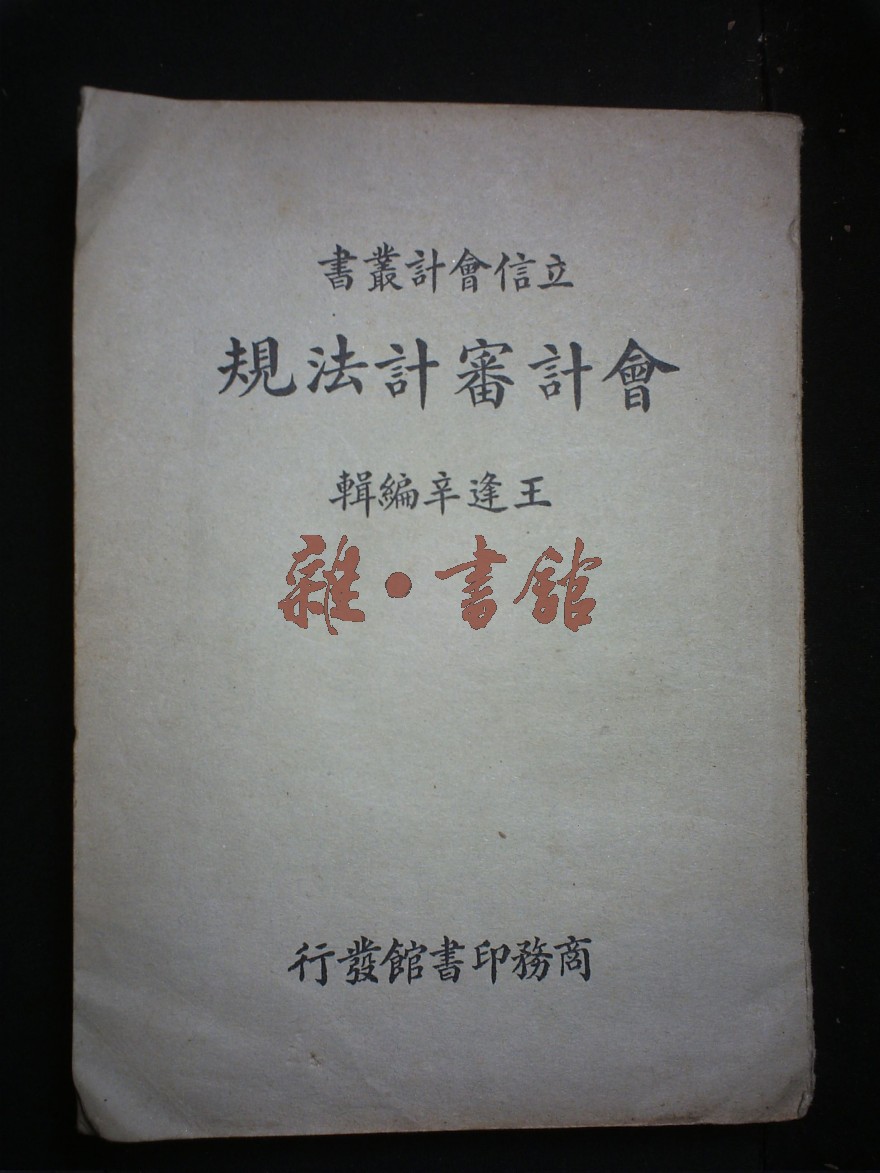 立信會計叢書
會計審計法規
王逢辛編輯
雜·書館
商務印書館發行